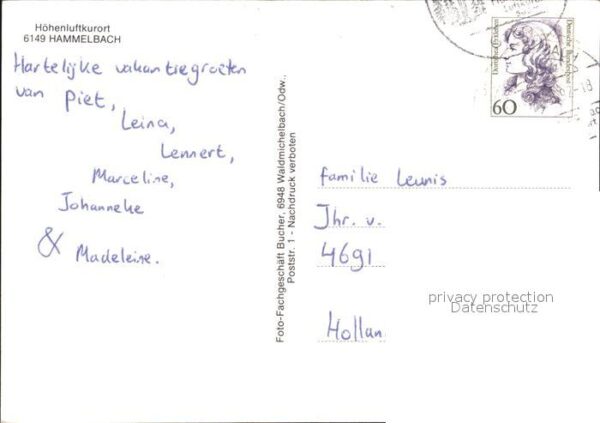 Höhenluftkurort
6149 HAMMELBACH
Hartelijke vakantiegroeten
van Piet,
Leina,
Lennert,
Marceline,
Johanneke
& Madeleine.
Foto-Fachgeschäft Bucher, 6948 Waldmichelbach/Odw.,
Poststr. 1 - Nachdruck verboten
Deutsche Bundespost
60
familie Leunis
Jhr. v.
4691
Hollan
privacy protection
Datenschutz